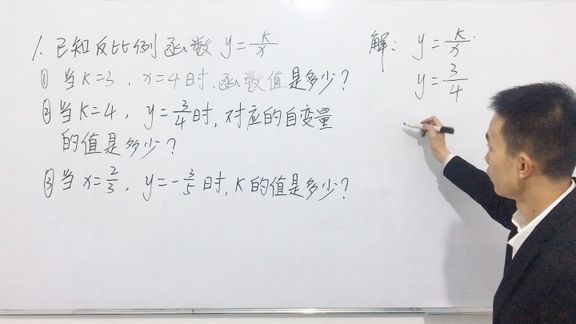 1. 已知反比例函数 y=k/x
① 当K=3, x=4时, 函数值是多少?
② 当K=4, y=3/4时, 对应的自变量
的值是多少?
③ 当x=2/3, y=-3/5时, K的值是多少?
解: y=k/x
y=3/4